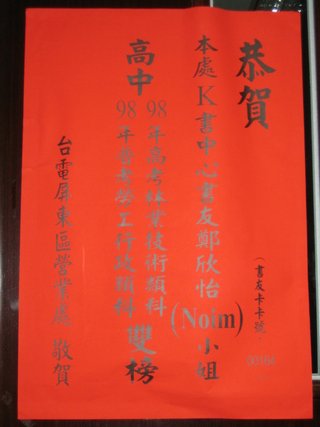 恭賀
(書友卡卡號
00164
本處K書中心書友鄭欣怡(Noim)小姐
高中
98年高考林業技術類科
98年普考勞工行政類科
雙榜
台電屏東區營業處 敬賀